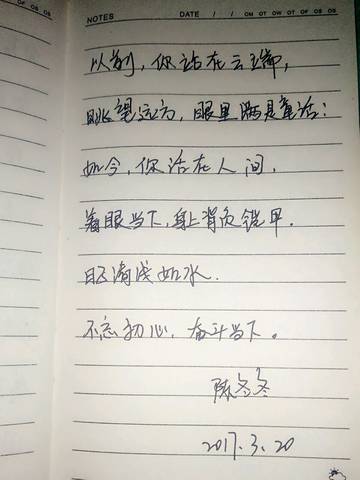 OF OS OS
NOTES DATE / / OM OT OW OT OF OS OS
以前，你站在云端，
眺望远方，眼里满是童话；
如今，你活在人间，
着眼当下，身上背负铠甲。
清浅如水．
不忘初心，奋斗当下。
陈冬冬
2017.3.20